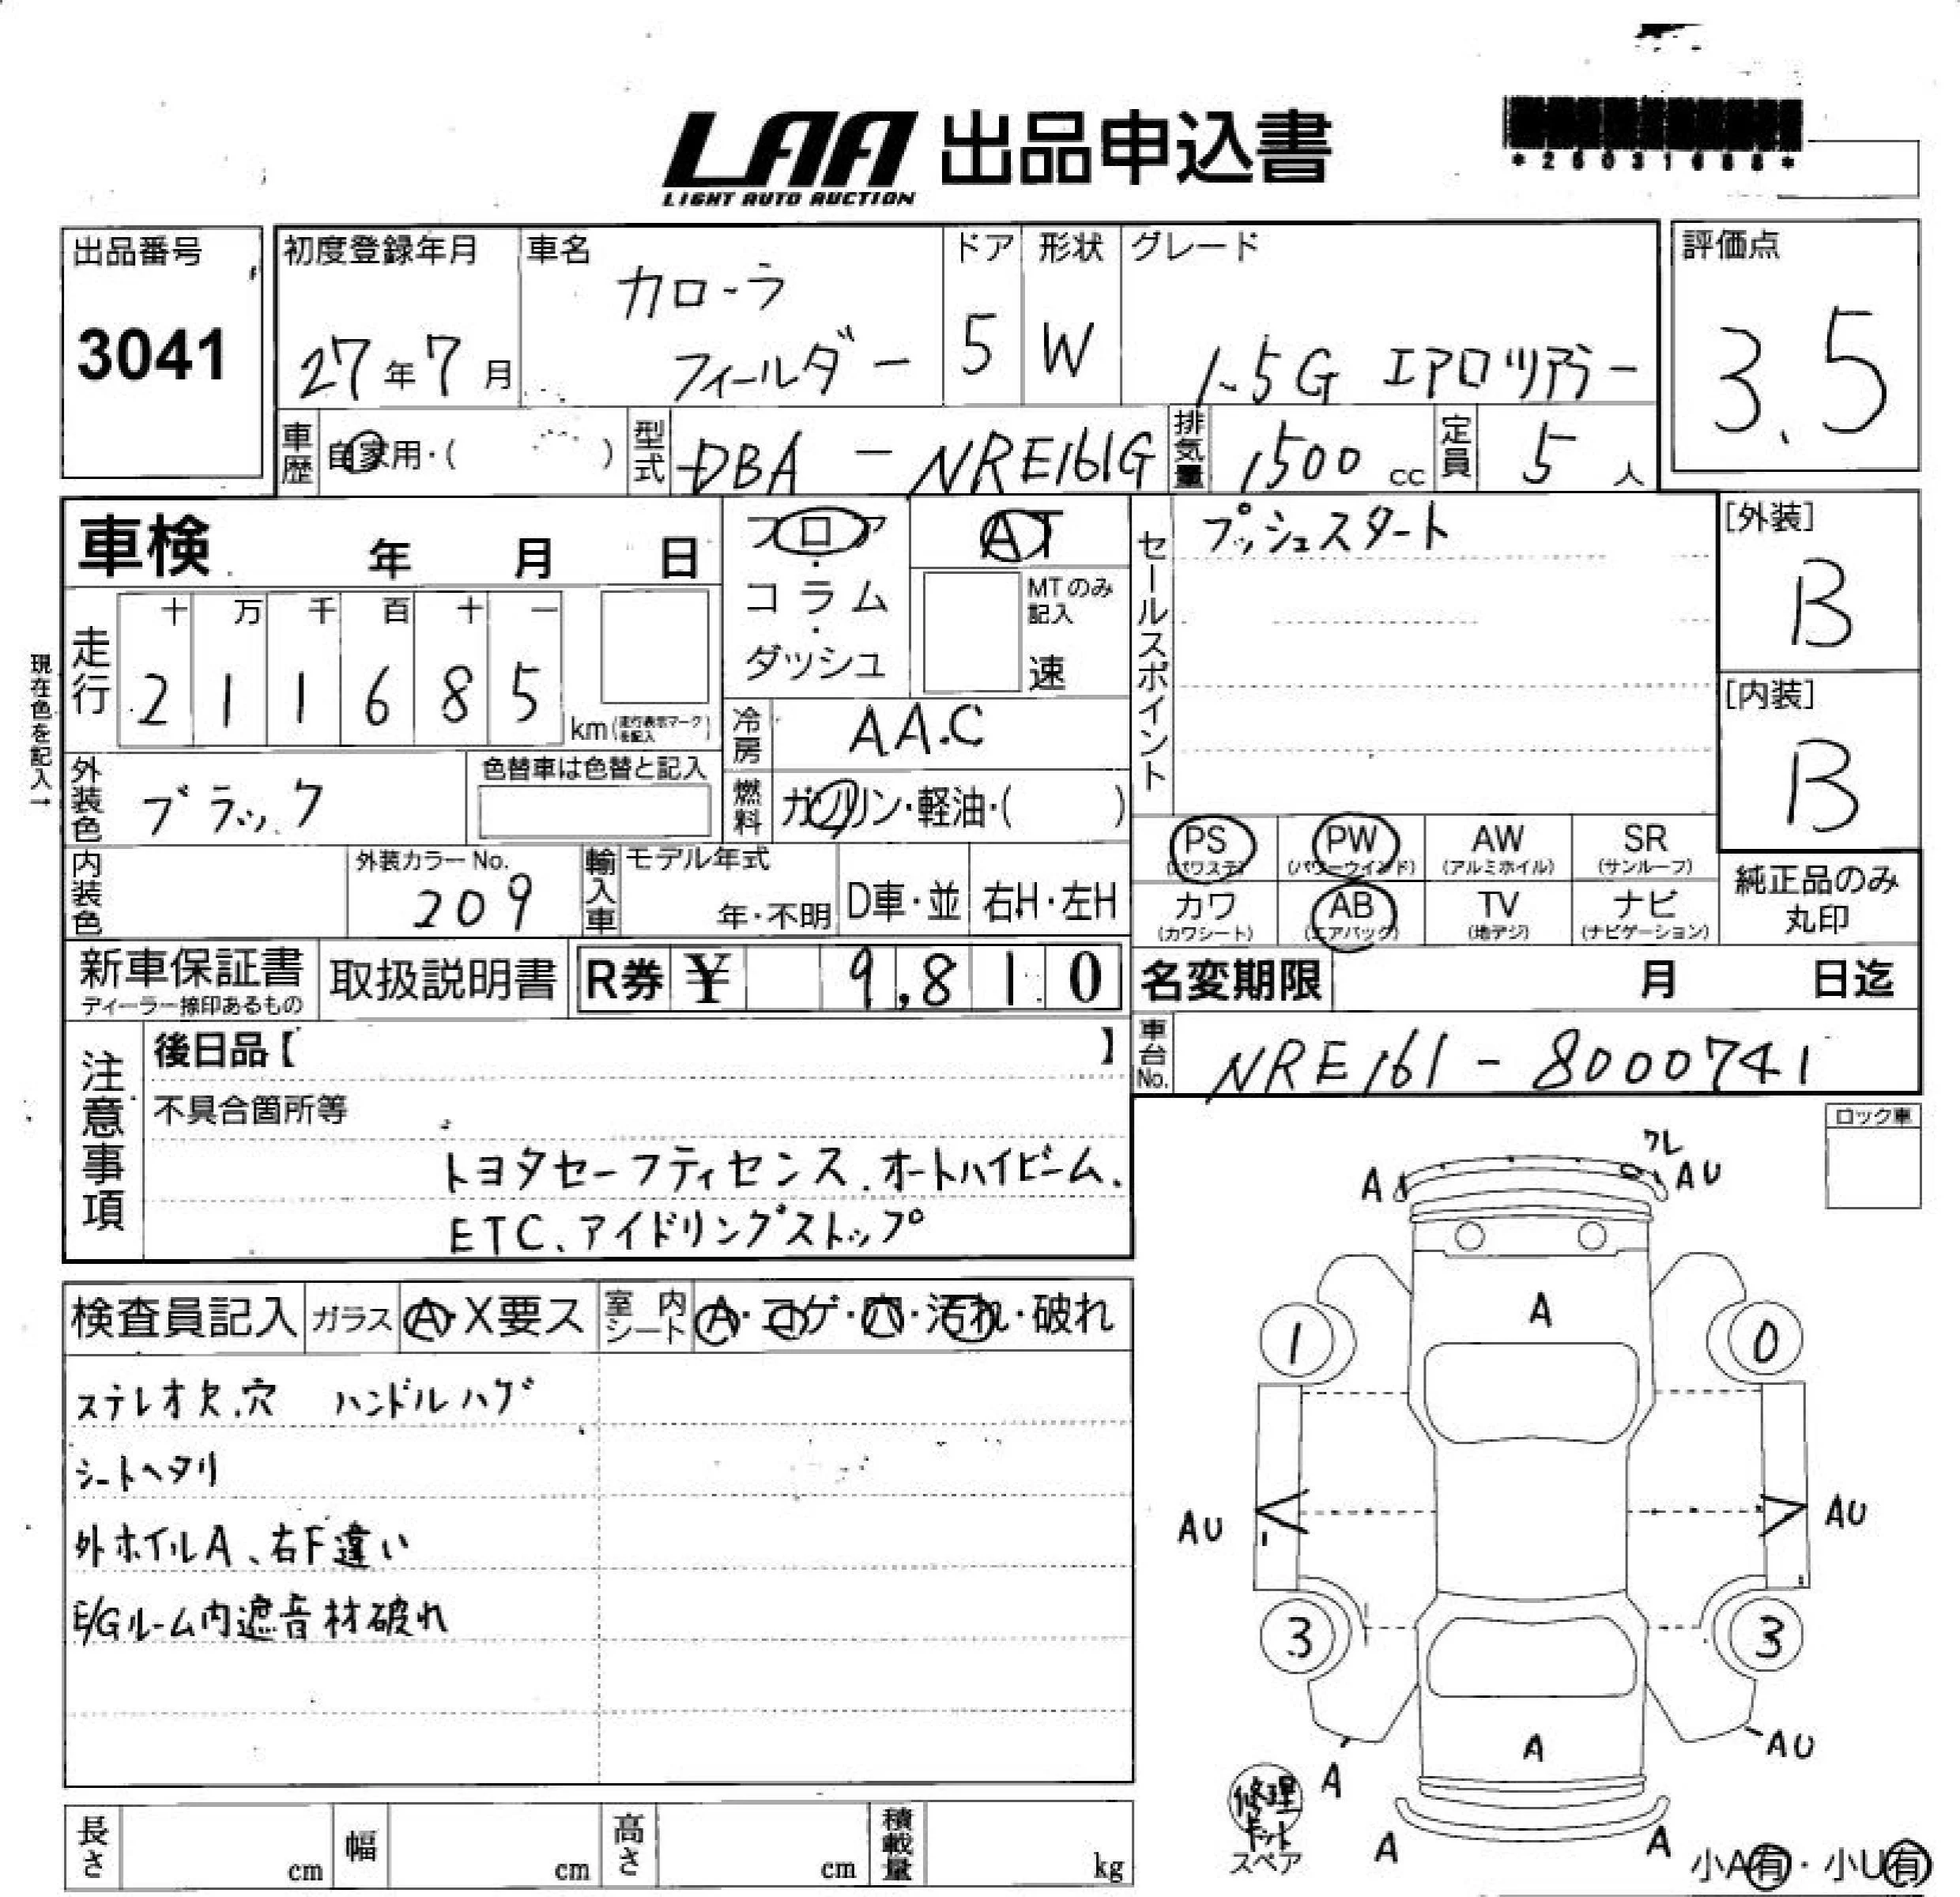 LAA 出品申込書
LIGHT AUTO AUCTION
出品番号
3041
初度登録年月
27年7月
車名
カローラ
フィールダー
ドア
5
形状
W
グレード
1.5G エアロツアラー
評価点
3.5
車歴
自家用・( )
型式
DBA-NRE161G
排気量
1500cc
定員
5人
車検 年 月 日
フロア・コラム・ダッシュ
AT
MTのみ記入
速
セールスポイント
プッシュスタート
[外装]
B
[内装]
B
現在色を記入→
走行
十 万 千 百 十 一
2 1 1 6 8 5
km(走行表示マークを記入)
冷房
AAC
外装色
ブラック
色替車は色替と記入
燃料
ガソリン・軽油・( )
PS (パワステ)
PW (パワーウインド)
AW (アルミホイル)
SR (サンルーフ)
カワ (カワシート)
AB (エアバック)
TV (地デジ)
ナビ (ナビゲーション)
純正品のみ丸印
内装色
外装カラーNo.
209
輸入車
モデル年式
年・不明
D車・並
右H・左H
新車保証書
ディーラー捺印あるもの
取扱説明書
R券 ¥ 9,810
名変期限 月 日迄
車台No.
NRE161-8000741
注意事項
後日品【 】
不具合箇所等
トヨタセーフティセンス、オートハイビーム、
ETC、アイドリングストップ
ロック車
検査員記入
ガラス
A・X要ス
室内シート
A・コゲ・穴・汚れ・破れ
ステレオ欠.穴 ハンドルハゲ
シートヘタリ
外ホイルA、右F違い
E/Gルーム内遮音材破れ
ワレ
A
AU
A
1
0
AU
AU
3
3
A
AU
A
修理キット
スペア
A
A
小A有・小U有
長さ cm
幅 cm
高さ cm
積載量 kg